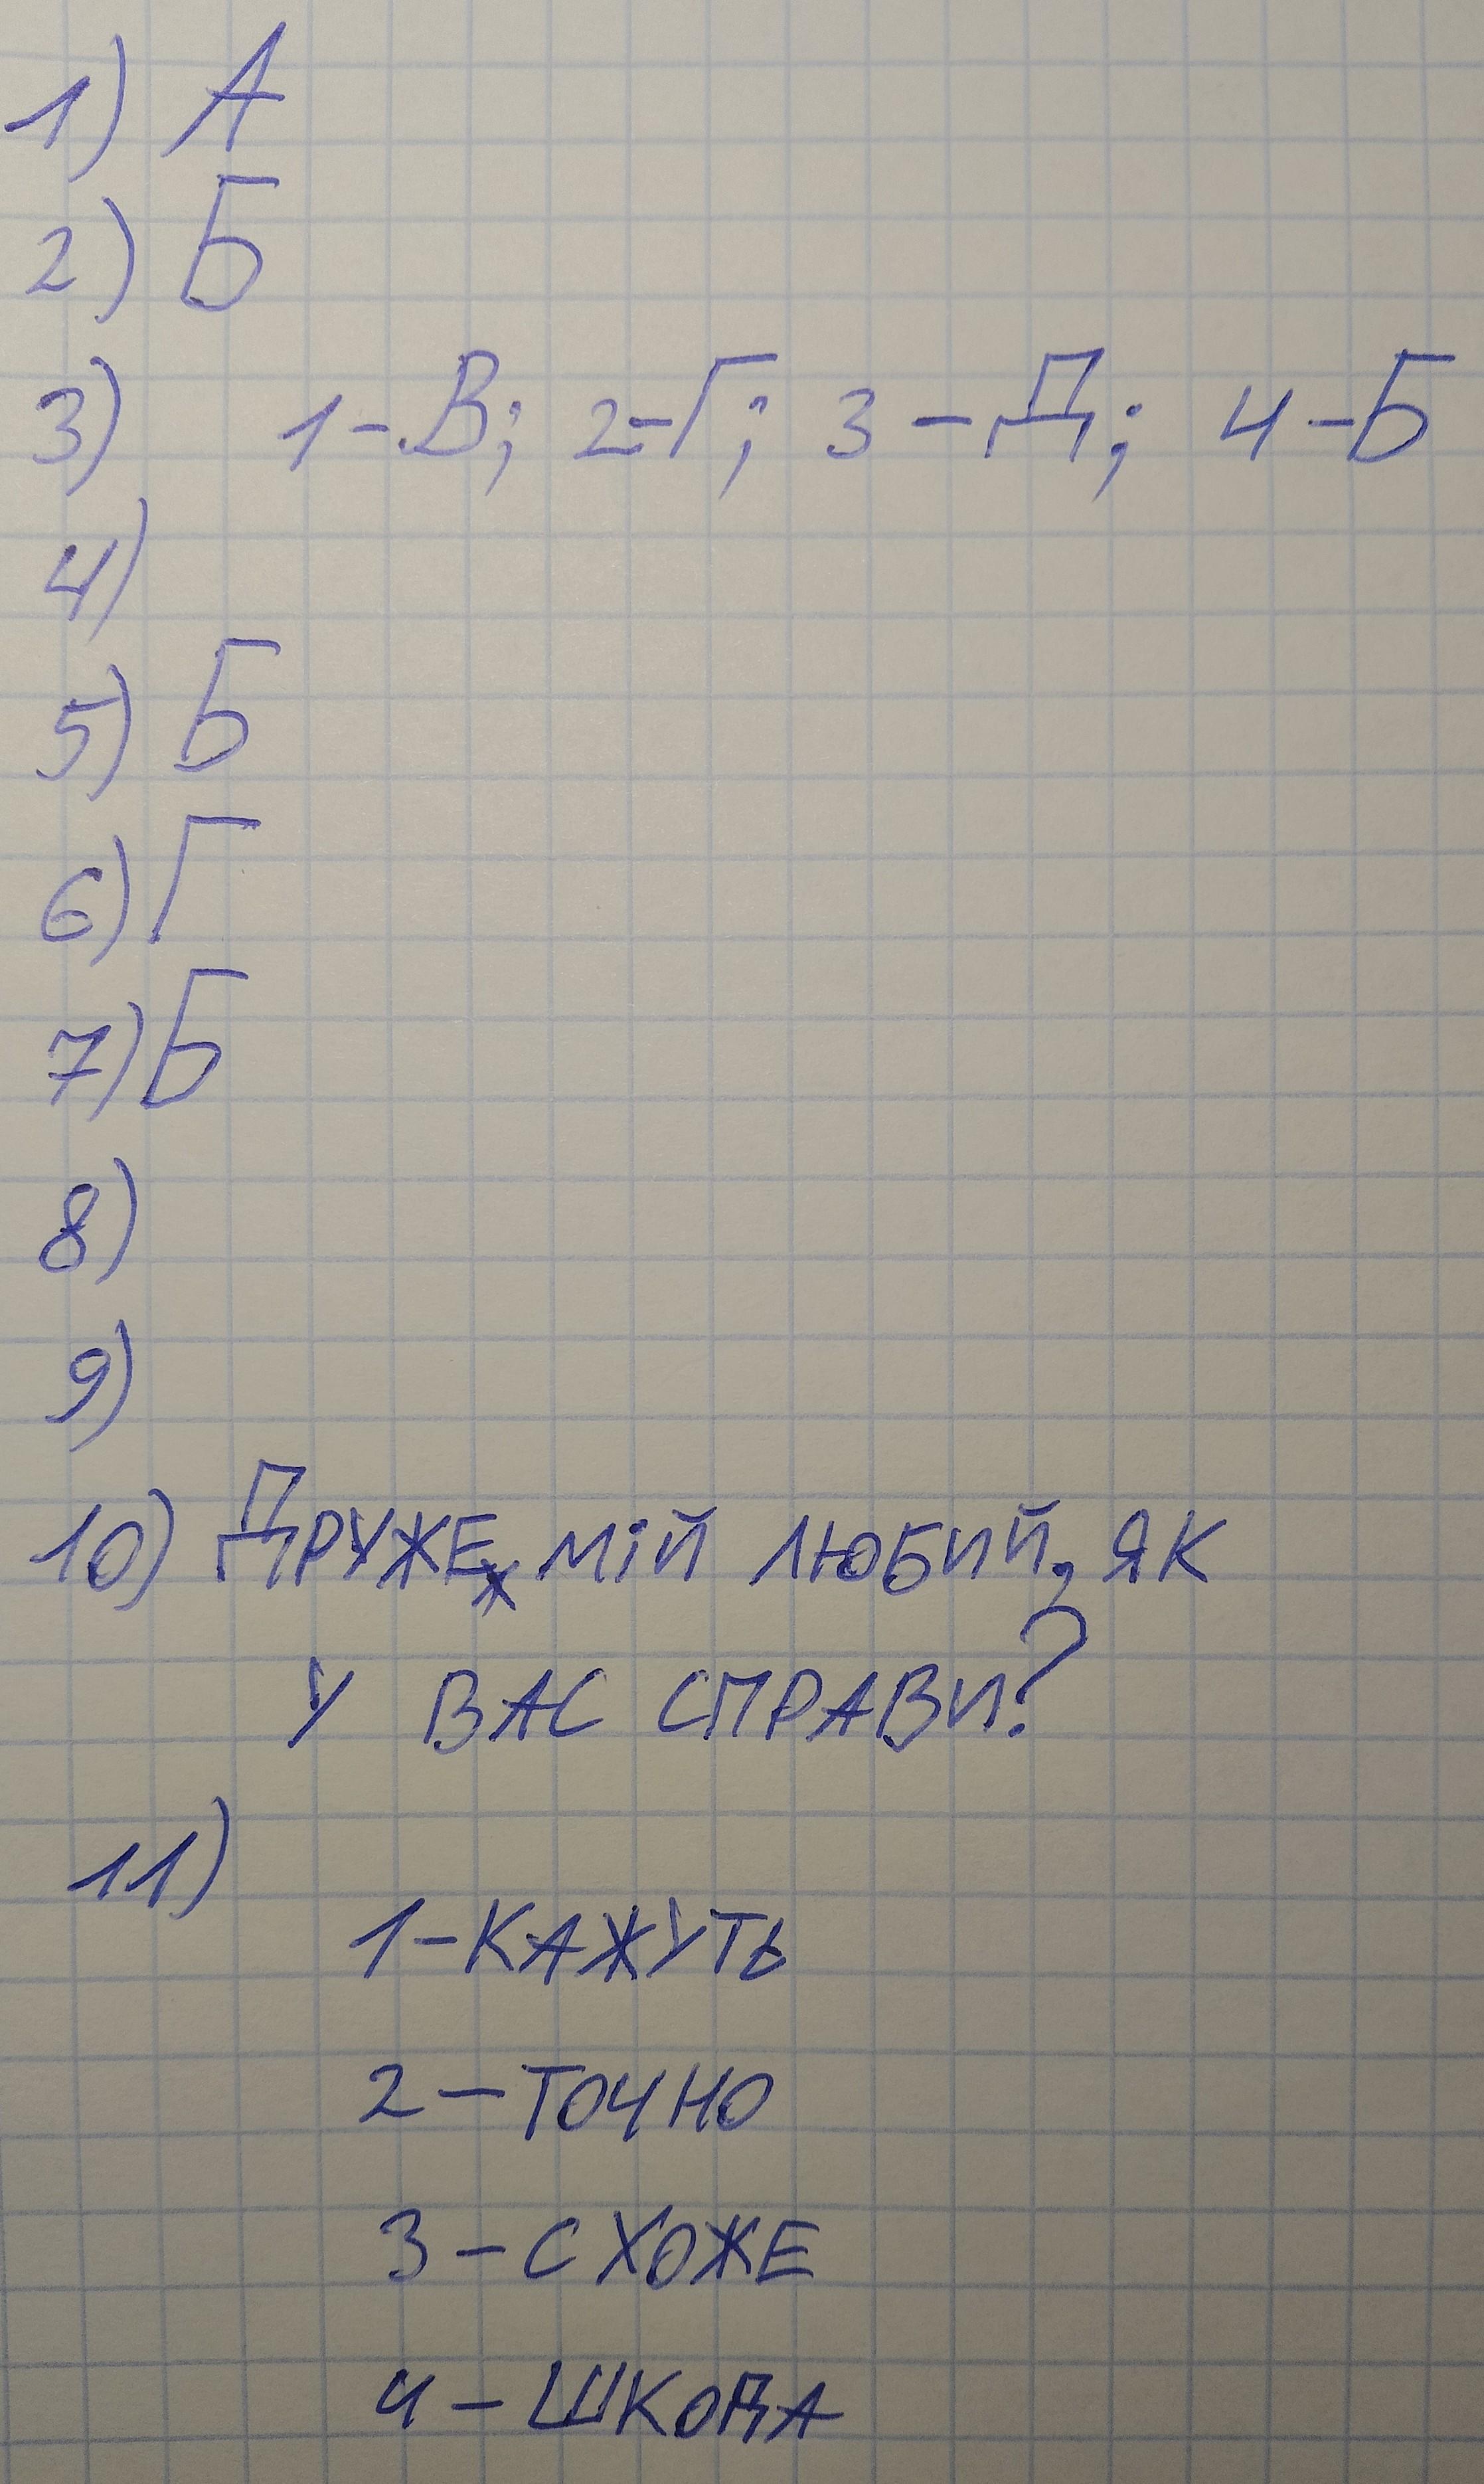 1) А
2) Б
3) 1-В; 2-Г; 3-Д; 4-Б
4)
5) Б
6) Г
7) Б
8)
9)
10) ДРУЖЕ МІЙ ЛЮБИЙ, ЯК
У ВАС СПРАВИ?
11)
1-КАЖУТЬ
2-ТОЧНО
3-СХОЖЕ
4-ШКОДА